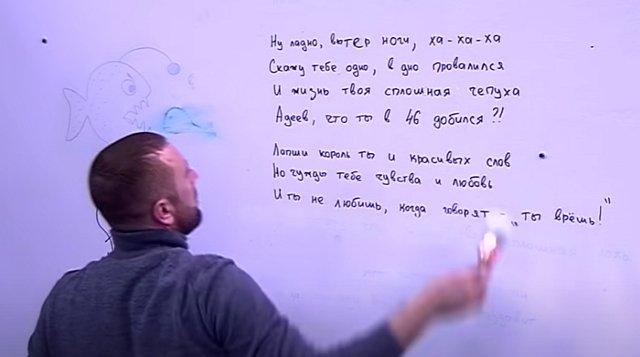 Ну ладно, вытер ноги, ха-ха-ха
Скажу тебе одно, в дно провалился
И жизнь твоя сплошная чепуха
Адеев, что ты в 46 добился?!
Лапши король ты и красивых слов
Но чужды тебе чувства и любовь
И ты не любишь, когда говорят - „ты врёшь!"
сплошная ложь